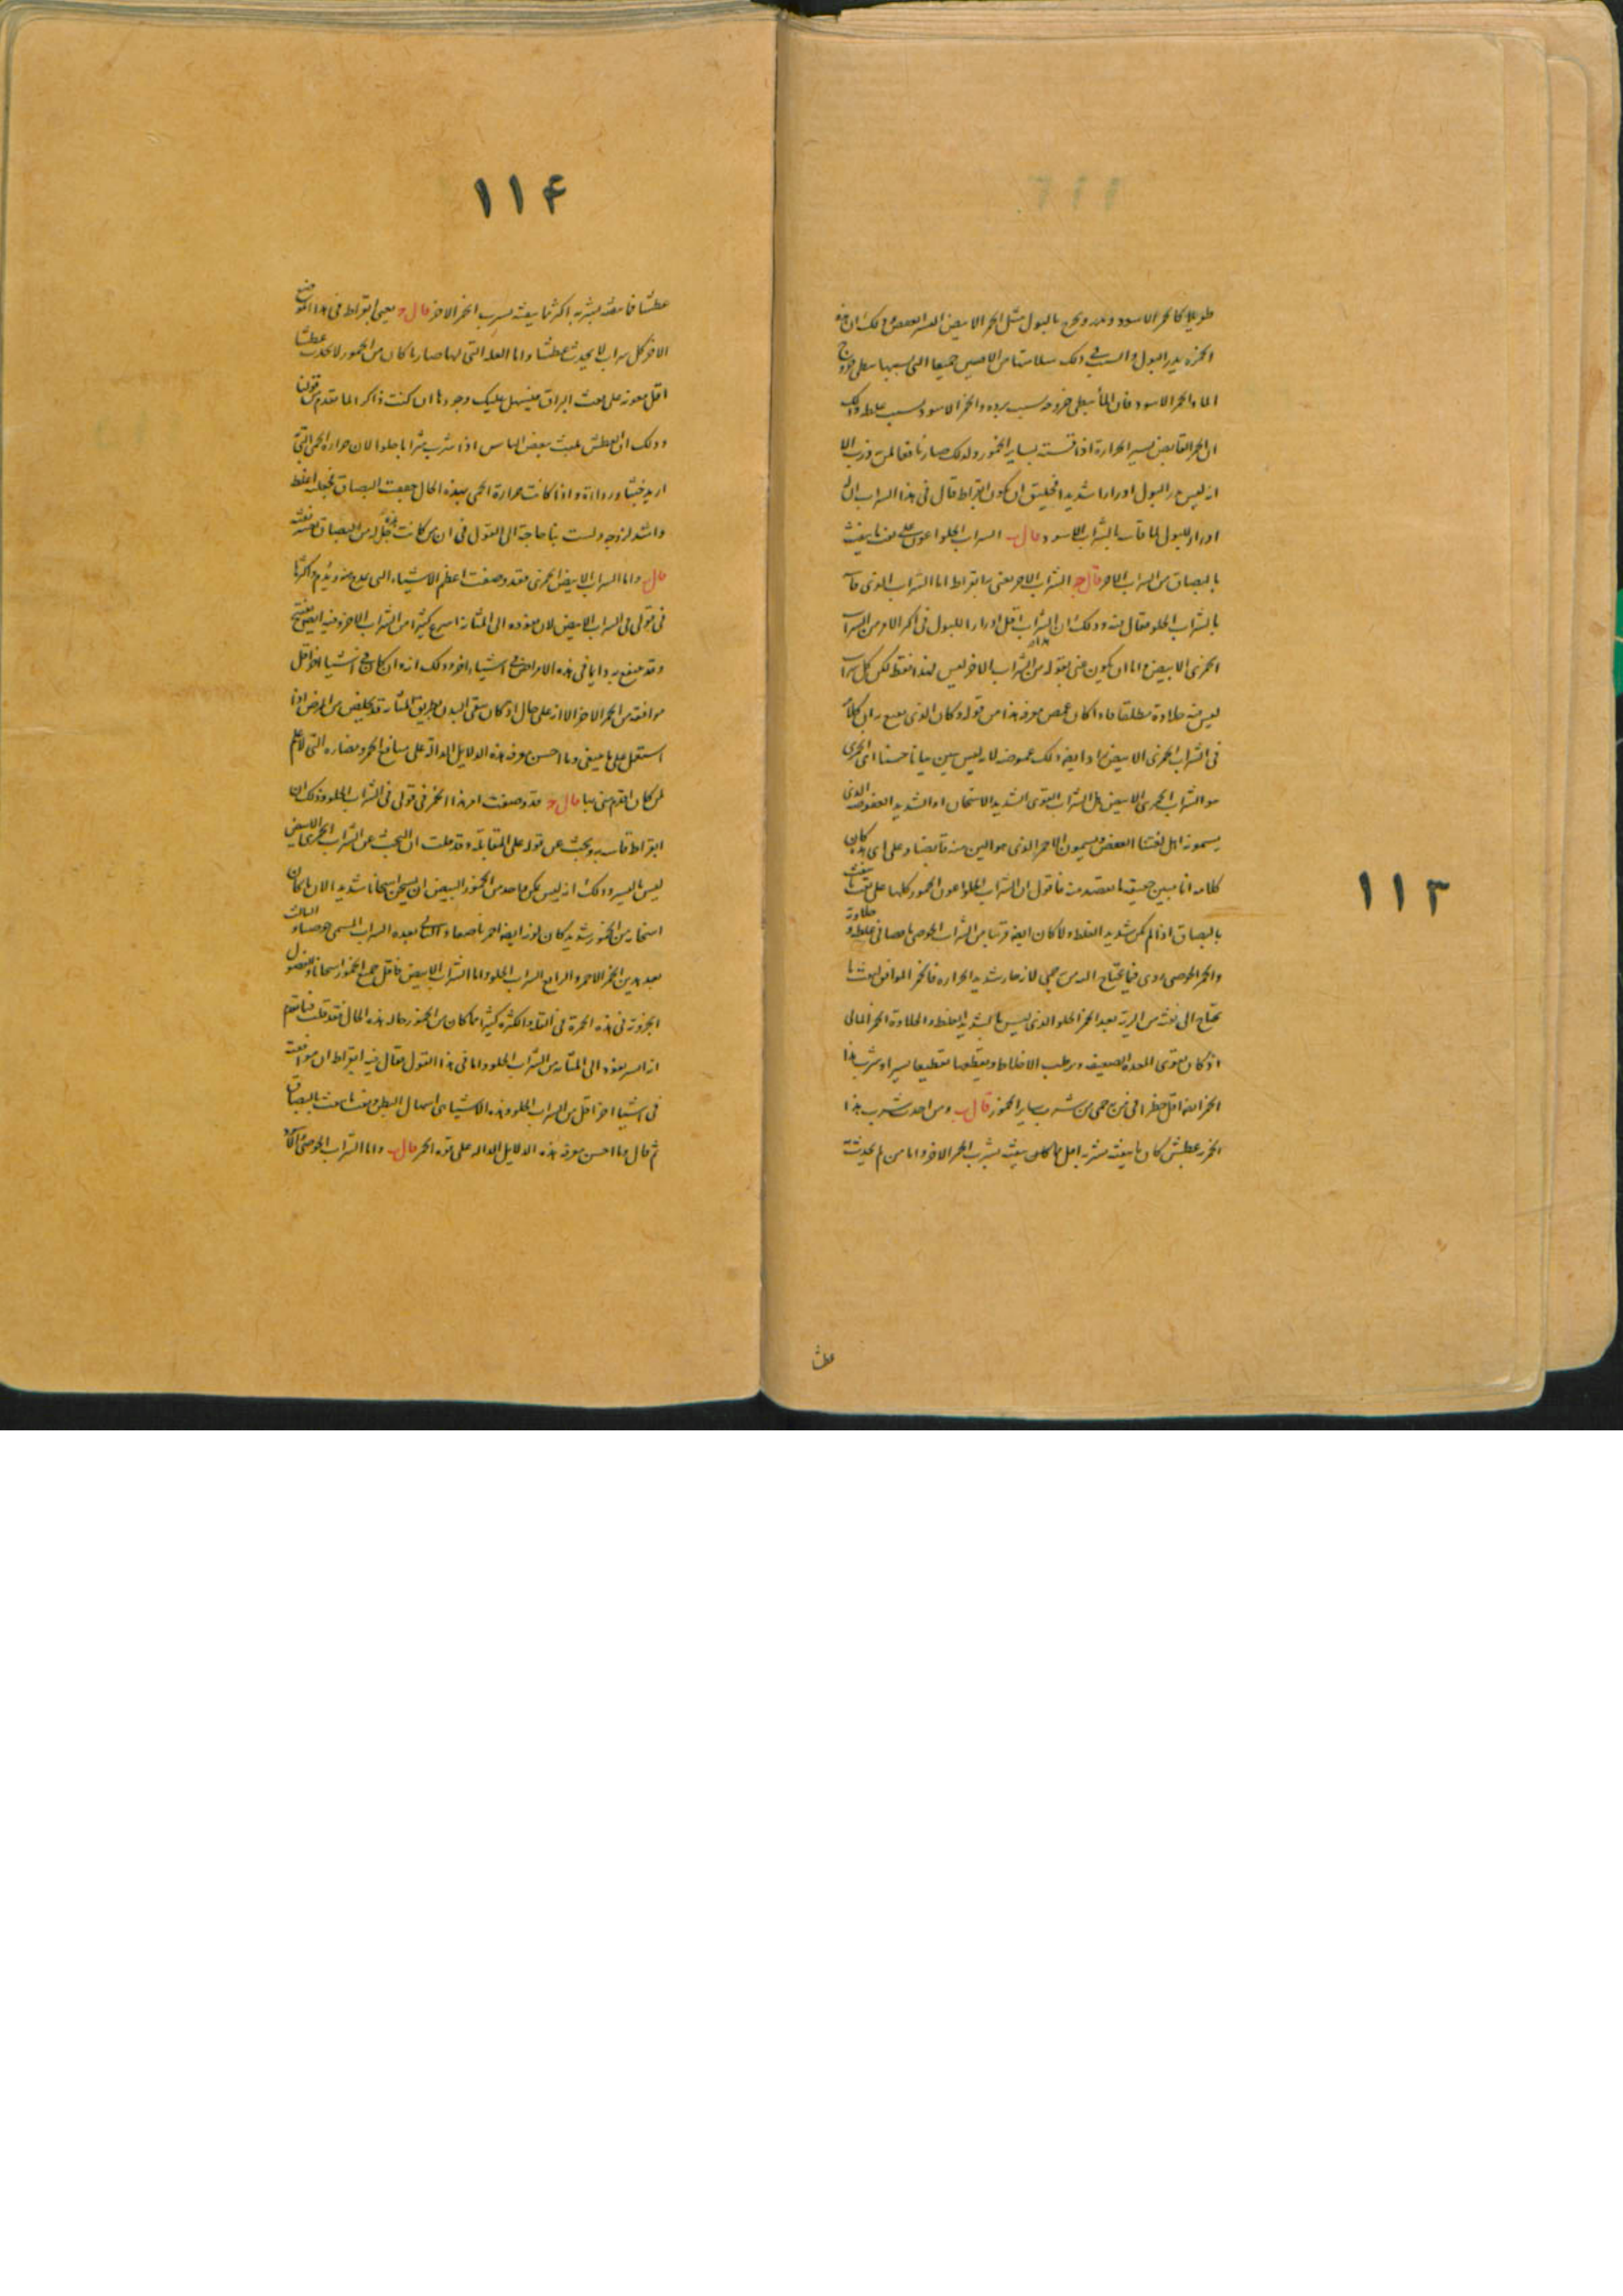 طويلا كالخمر الاسود ويدر ويخرج بالبول مثل الخمر الابيض
الخمرة يدر البول والسبب في ذلك سلامتها من الامرين جميعا التي بسببها يبطئ خروج
الماء والخمر الاسود فان الماء يبطئ خروجه بسبب برده والخمر الاسود بسبب غلظه وذلك
ان الخمر القابض يسير الحرارة اذا قسته بساير الخمور ولذلك صار نافعا لمن
انه ليس يدر البول ادرارا شديدا فخليق ان يكون ابقراط قال في هذا الشراب انه
ادرارا للبول لما قاسه بالشراب الاسود قال ب الشراب الحلو اعون على نفث ما ينفث
بالبصاق من الشراب الاخر قال ج الشراب الاخر يعني به ابقراط اما الشراب الذي قاسه
بالشراب الحلو فقال فيه وذلك ان الشراب اقل ادرارا للبول في اكثر الامر من الشراب
الخمري الابيض واما ان يكون عنى بقوله من الشراب الاخر ليس هذا فقط لكن كل شراب
ليس فيه حلاوة مطلقا فاذا كان غمض معرفة هذا من قوله وكان الذي
في الشراب الخمري الابيض زاد ايضا ذلك غموضه لانه ليس يبين بيانا حسنا اي الخمري
هو الشراب الخمري الابيض هل الشراب القوي الشديد الاسخان او الشديد العفوصة الذي
يسمونه اهل لغتنا العفص ويسمون الاخر الذي هو الين منه قابضا وعلى اي كان
كلامه انا مبين حقيقة ما يقصد منه فاقول ان الشراب الحلو اعون الخمور كلها على نفث ما ينفث
بالبصاق اذا لم يكن شديد الغلظ ولا كان ايضا قريبا من الشراب الخوصي ناقصا في غلظه وحلاوته
والخمر الخوصي ردي فيما يحتاج اليه من به حمى لانه حار شديد الحرارة فالخمر الموافق لنفث ما
يحتاج الى نفثه من الرية بعد الخمر الحلو الذي ليس بالشديد الغلظ والحلاوة الخمر المائي
اذ كان يقوي المعدة الضعيفة ويرطب الاخلاط ويقطعها تقطيعا يسيرا وشرب هذا
الخمر ايضا اقل خطرا في من به حمى من شرب ساير الخمور قال ب ومن احدث شرب هذا
الخمر به عطش كان ما ينفثه بشربه اقل مما كان ينفثه بشرب الخمر الاخر واما من لم يحدث به
عطشا
۱۱۳
۱۱۴
عطشا فما ينفثه بشربه اكثر مما ينفثه بشرب الخمر الاخر قال ج يعني ابقراط في هذا الموضع
الاخر كل شراب لا يحدث عطشا واما العلة التي لها صار ما كان من الخمور لا يحدث عطشا
اقل معونة على نفث البزاق فيسهل عليك وجودها ان كنت ذاكرا لما تقدم من قولنا
وذلك ان العطش يلبث ببعض الناس اذا شرب شرابا حلوا لان حرارة الحمى التي
ازيد خبثا ورداءة واذا كانت حرارة الحمى بهذه الحال جففت البصاق فجعلته اغلظ
واشد لزوجة ولست بنا حاجة الى القول في ان من كانت هذه حال من البصاق نفثه
قال واما الشراب الابيض الخمري فقد وصفت اعظم الاشياء التي يمدح منه ويذم واكثرها
في قولي في الشراب الابيض لان نفوذه الى المثانة اسرع كثيرا من الشراب الاخر وفيه ايضا
وقد ينتفع به دايما في هذه الامراض في اشياء اخر وذلك انه وان كان في اشياء اخر اقل
موافقة من الخمر الاخر الا انه على حال اذ كان ينقي البدن بطريق المثانة قد يخلص من المرض اذا
استعمل على ما ينبغي وما احسن معرفة هذه الدلايل الدالة على منافع الخمر ومضاره التي لا علم
لمن كان اقدم مني بها قال ج قد وصفت امر هذا الخمر في قولي في الشراب الحلو وذلك ان
ابقراط قاسه به وبحث عن قوله على المقابلة وقد قلت ان البحث عن الشراب الخمري الابيض
ليس باليسير وذلك انه ليس يمكن ما حد من الخمور البيض ان يسخن اسخانا شديدا لان ما كان
اسخانه من الخمور شديد كان لونه ايضا احمر ناصعا و بعده الشراب المسمى خوصيا والثالث
بعد هذين الخمر الاحمر والرابع الشراب الحلو واما الشراب الابيض فاقل جميع الخمور اسخانا
الخمرية في هذه الخمرة في القلة والكثرة كثيرا ما كان من الخمور حاله هذه الحال فقد قلت فيما تقدم
انه اسرع نفوذا الى المثانة من الشراب الحلو واما في هذا القول فقال فيه ابقراط ان موافقته
في اشياء اخر اقل من الشراب الحلو وهذه الاشياء هي اسهال البطن ونفث ما ينفث بالبصاق
ثم قال وما احسن معرفة هذه الدلايل الدالة على قوة الخمر قال ب واما الشراب الخوصي